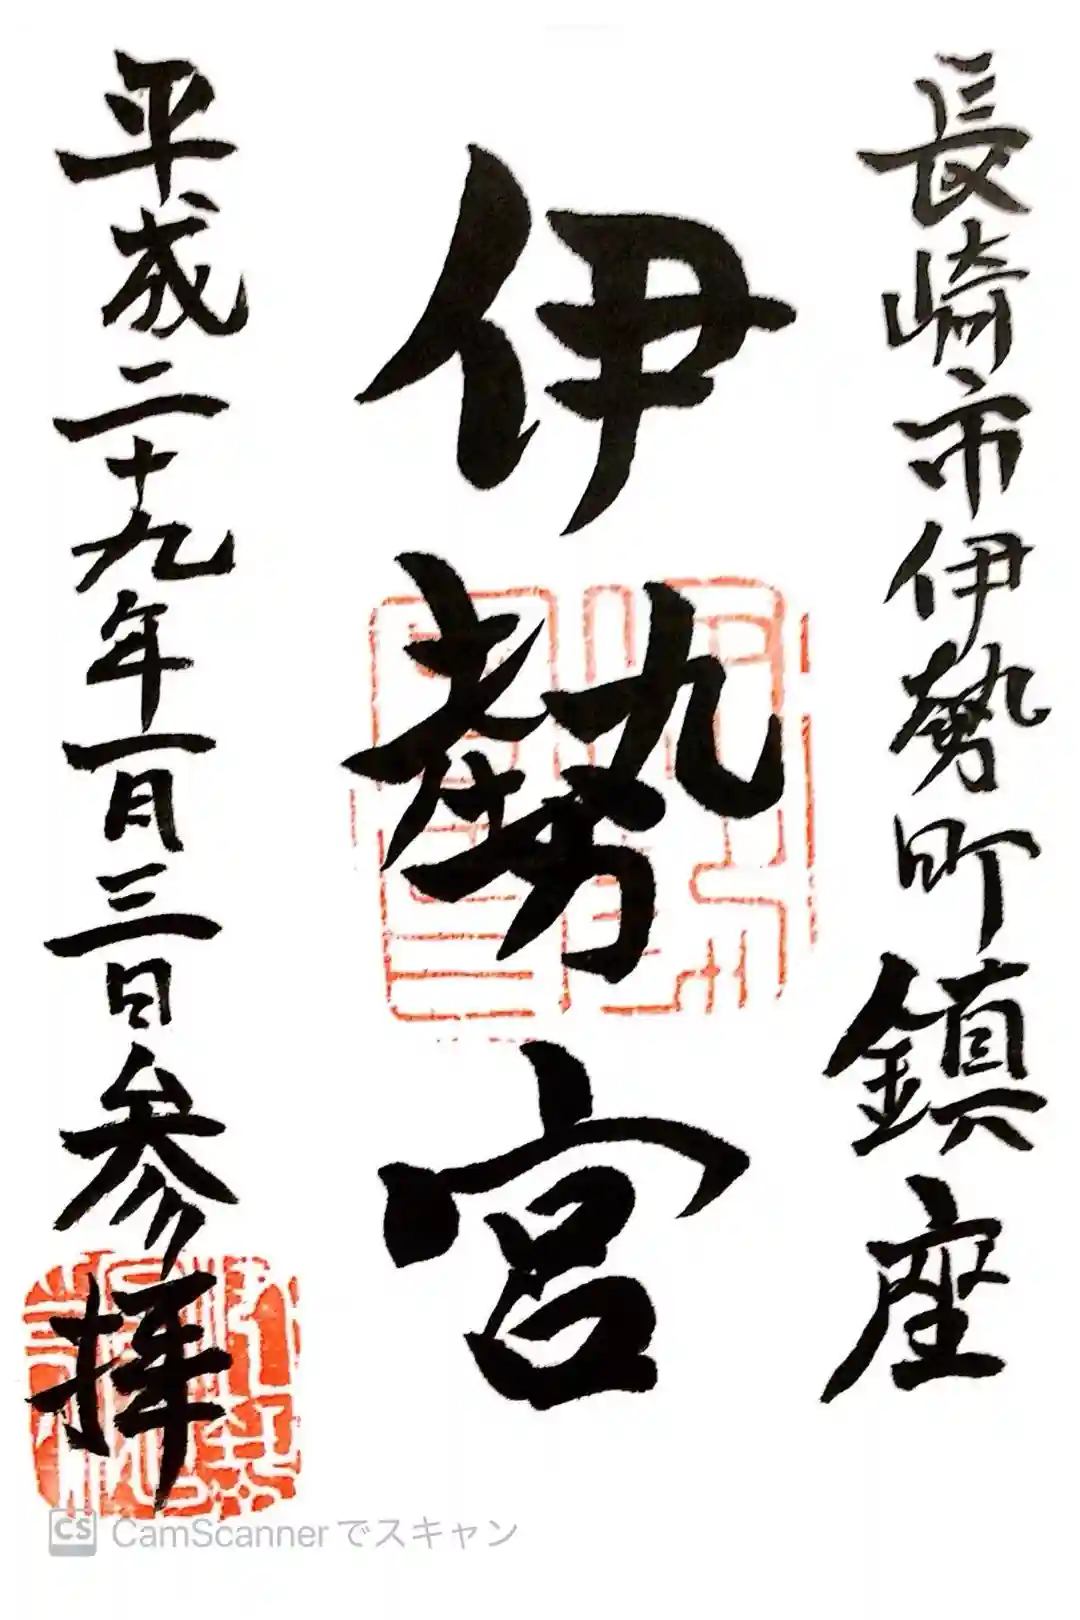 長崎市伊勢町鎮座
伊勢宮
平成二十九年一月三日参拝
CS CamScannerでスキャン